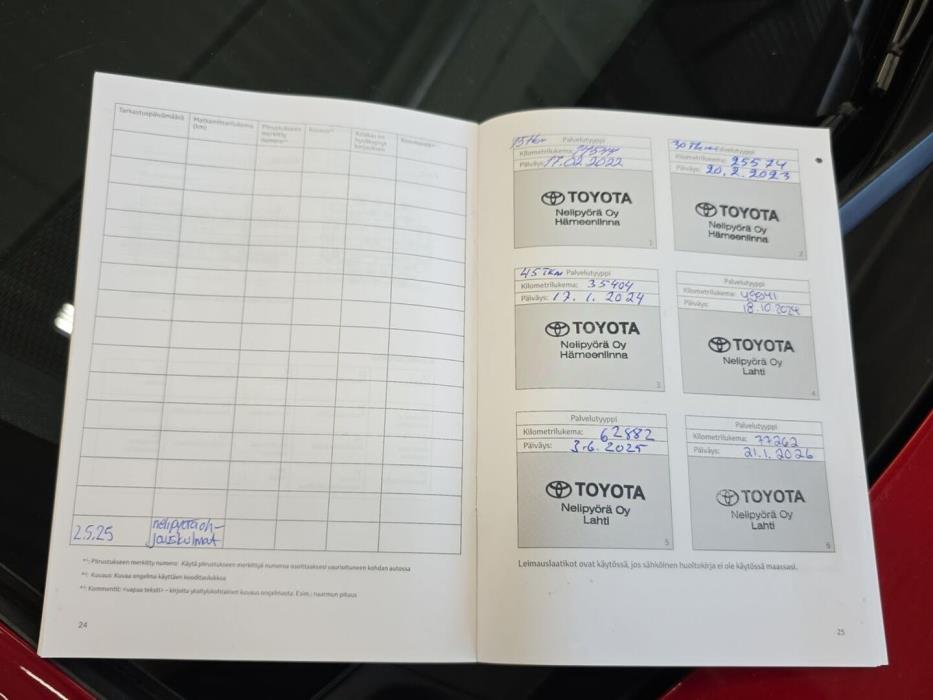 Tarkastuspäivämäärä Matkamittarilukema (km) Piirustukseen merkitty numero*¹ Kuvaus*² Asiakas on hyväksynyt korjauksen Kommentti*³
2.5.25 nelipyöräoh-
jauskulmat
*¹: Piirustukseen merkitty numero: Käytä piirustukseen merkittyä numeroa osoittaaksesi vaurioituneen kohdan autossa
*²: Kuvaus: Kuvaa ongelma käyttäen kooditaulukkoa
*³: Kommentti: <vapaa teksti> – kirjoita yksityiskohtainen kuvaus ongelmasta. Esim.: naarmun pituus
24
15tkm Palvelutyyppi
Kilometrilukema:
Päiväys: 17.02.2022
TOYOTA
Nelipyörä Oy
Hämeenlinna
1
30 Tkm Palvelutyyppi
Kilometrilukema: 25574
Päiväys: 20.2.2023
TOYOTA
Nelipyörä Oy
Hämeenlinna
2
45 TKM Palvelutyyppi
Kilometrilukema: 35404
Päiväys: 17.1.2024
TOYOTA
Nelipyörä Oy
Hämeenlinna
3
Palvelutyyppi
Kilometrilukema:
Päiväys: 18.10.2024
TOYOTA
Nelipyörä Oy
Lahti
4
Palvelutyyppi
Kilometrilukema: 62882
Päiväys: 3.6.2025
TOYOTA
Nelipyörä Oy
Lahti
5
Palvelutyyppi
Kilometrilukema: 77262
Päiväys: 21.1.2026
TOYOTA
Nelipyörä Oy
Lahti
6
Leimauslaatikot ovat käytössä, jos sähköinen huoltokirja ei ole käytössä maassasi.
25